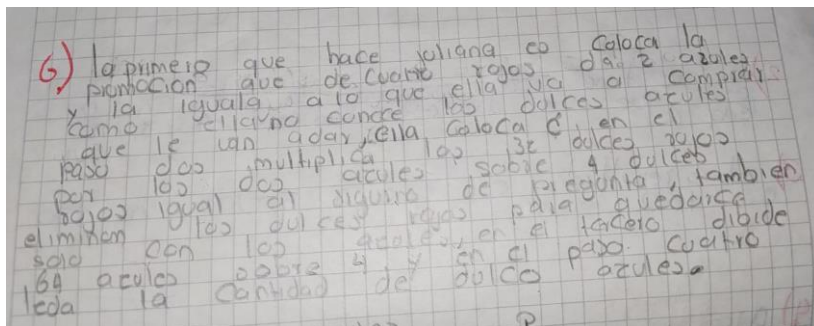 6) la primero que hace juliana es coloca la
promocion que de cuatro rojos da 2 azules
y la iguala a lo que ella va a comprar
como ella no conoce los dulces azules
que le van a dar, ella coloca C, en el
paso dos multiplica los 32 dulces rojos
por los dos acules sobre 4 dulces
rojos igual al signino de pregunta, tambien
eliminan los dulces rojos para quedarce
solo con los azules, en el tercero dibide
64 acules sobre 4 y en el paso cuatro
leda la cantidad de dulce azules.